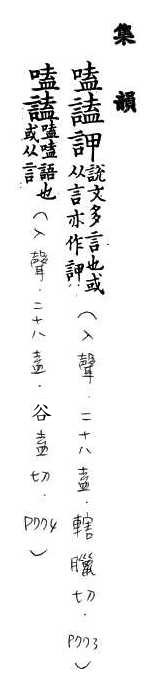 集韻
嗑譫詍說文多言也或从言亦作詍(入聲.二十八盍.轄臘切.P773)
嗑譫嗑嗑語也或从言(入聲.二十八盍.谷盍切.P774)